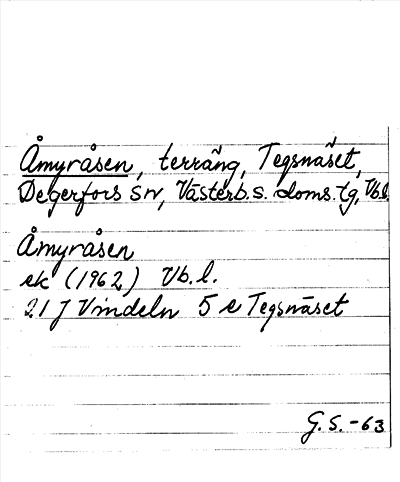 Åmyråsen, terräng, Tegsnäset,
Degerfors sn, Västerb. s. doms. tg, Vb.l.
Åmyråsen
ek (1962) Vb.l.
21 J Vindeln 5 e Tegsnäset
G.S. -63